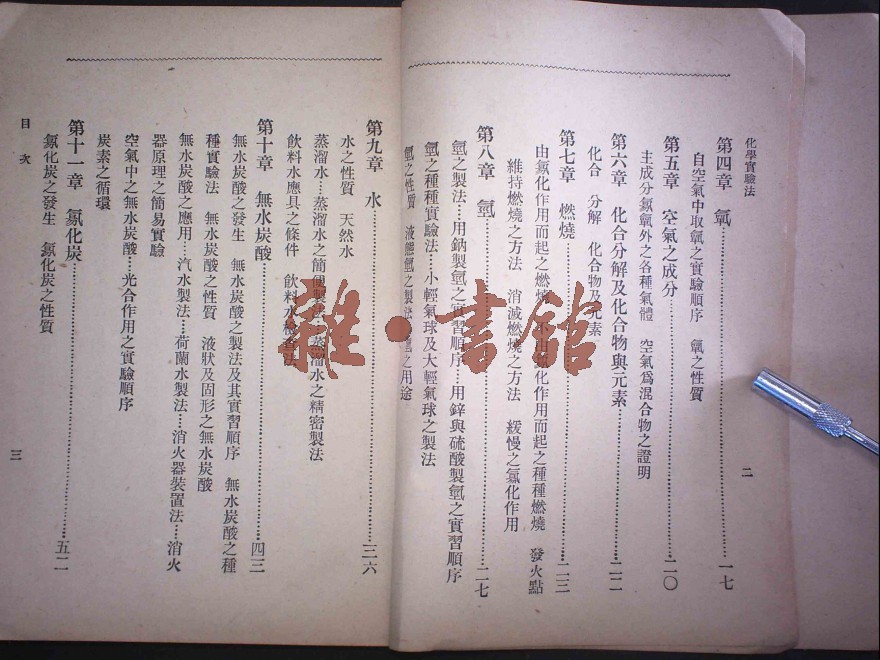 化學實驗法
二
第四章 氮……一七
自空氣中取氮之實驗順序 氮之性質
第五章 空氣之成分……二〇
主成分氱氮外之各種氣體 空氣爲混合物之證明
第六章 化合分解及化合物與元素……二二
化合 分解 化合物及元素
第七章 燃燒……二三
由氱化作用而起之燃燒 不由氱化作用而起之種種燃燒 發火點
維持燃燒之方法 消滅燃燒之方法 緩慢之氱化作用
第八章 氫……二七
氫之製法…用鈉製氫之實習順序…用鋅與硫酸製氫之實習順序
氫之種種實驗法…小輕氣球及大輕氣球之製法
氫之性質 液態氫之製法 氫之用途
第九章 水……三六
水之性質 天然水
蒸溜水…蒸溜水之簡便製法…蒸溜水之精密製法
飲料水應具之條件 飲料水檢查法
第十章 無水炭酸……四三
無水炭酸之發生 無水炭酸之製法及其實習順序 無水炭酸之種
種實驗法 無水炭酸之性質 液狀及固形之無水炭酸
無水炭酸之應用…汽水製法…荷蘭水製法…消火器裝置法…消火
器原理之簡易實驗
空氣中之無水炭酸…光合作用之實驗順序
炭素之循環
第十一章 氱化炭……五二
氱化炭之發生 氱化炭之性質
目次
三
雜·書館